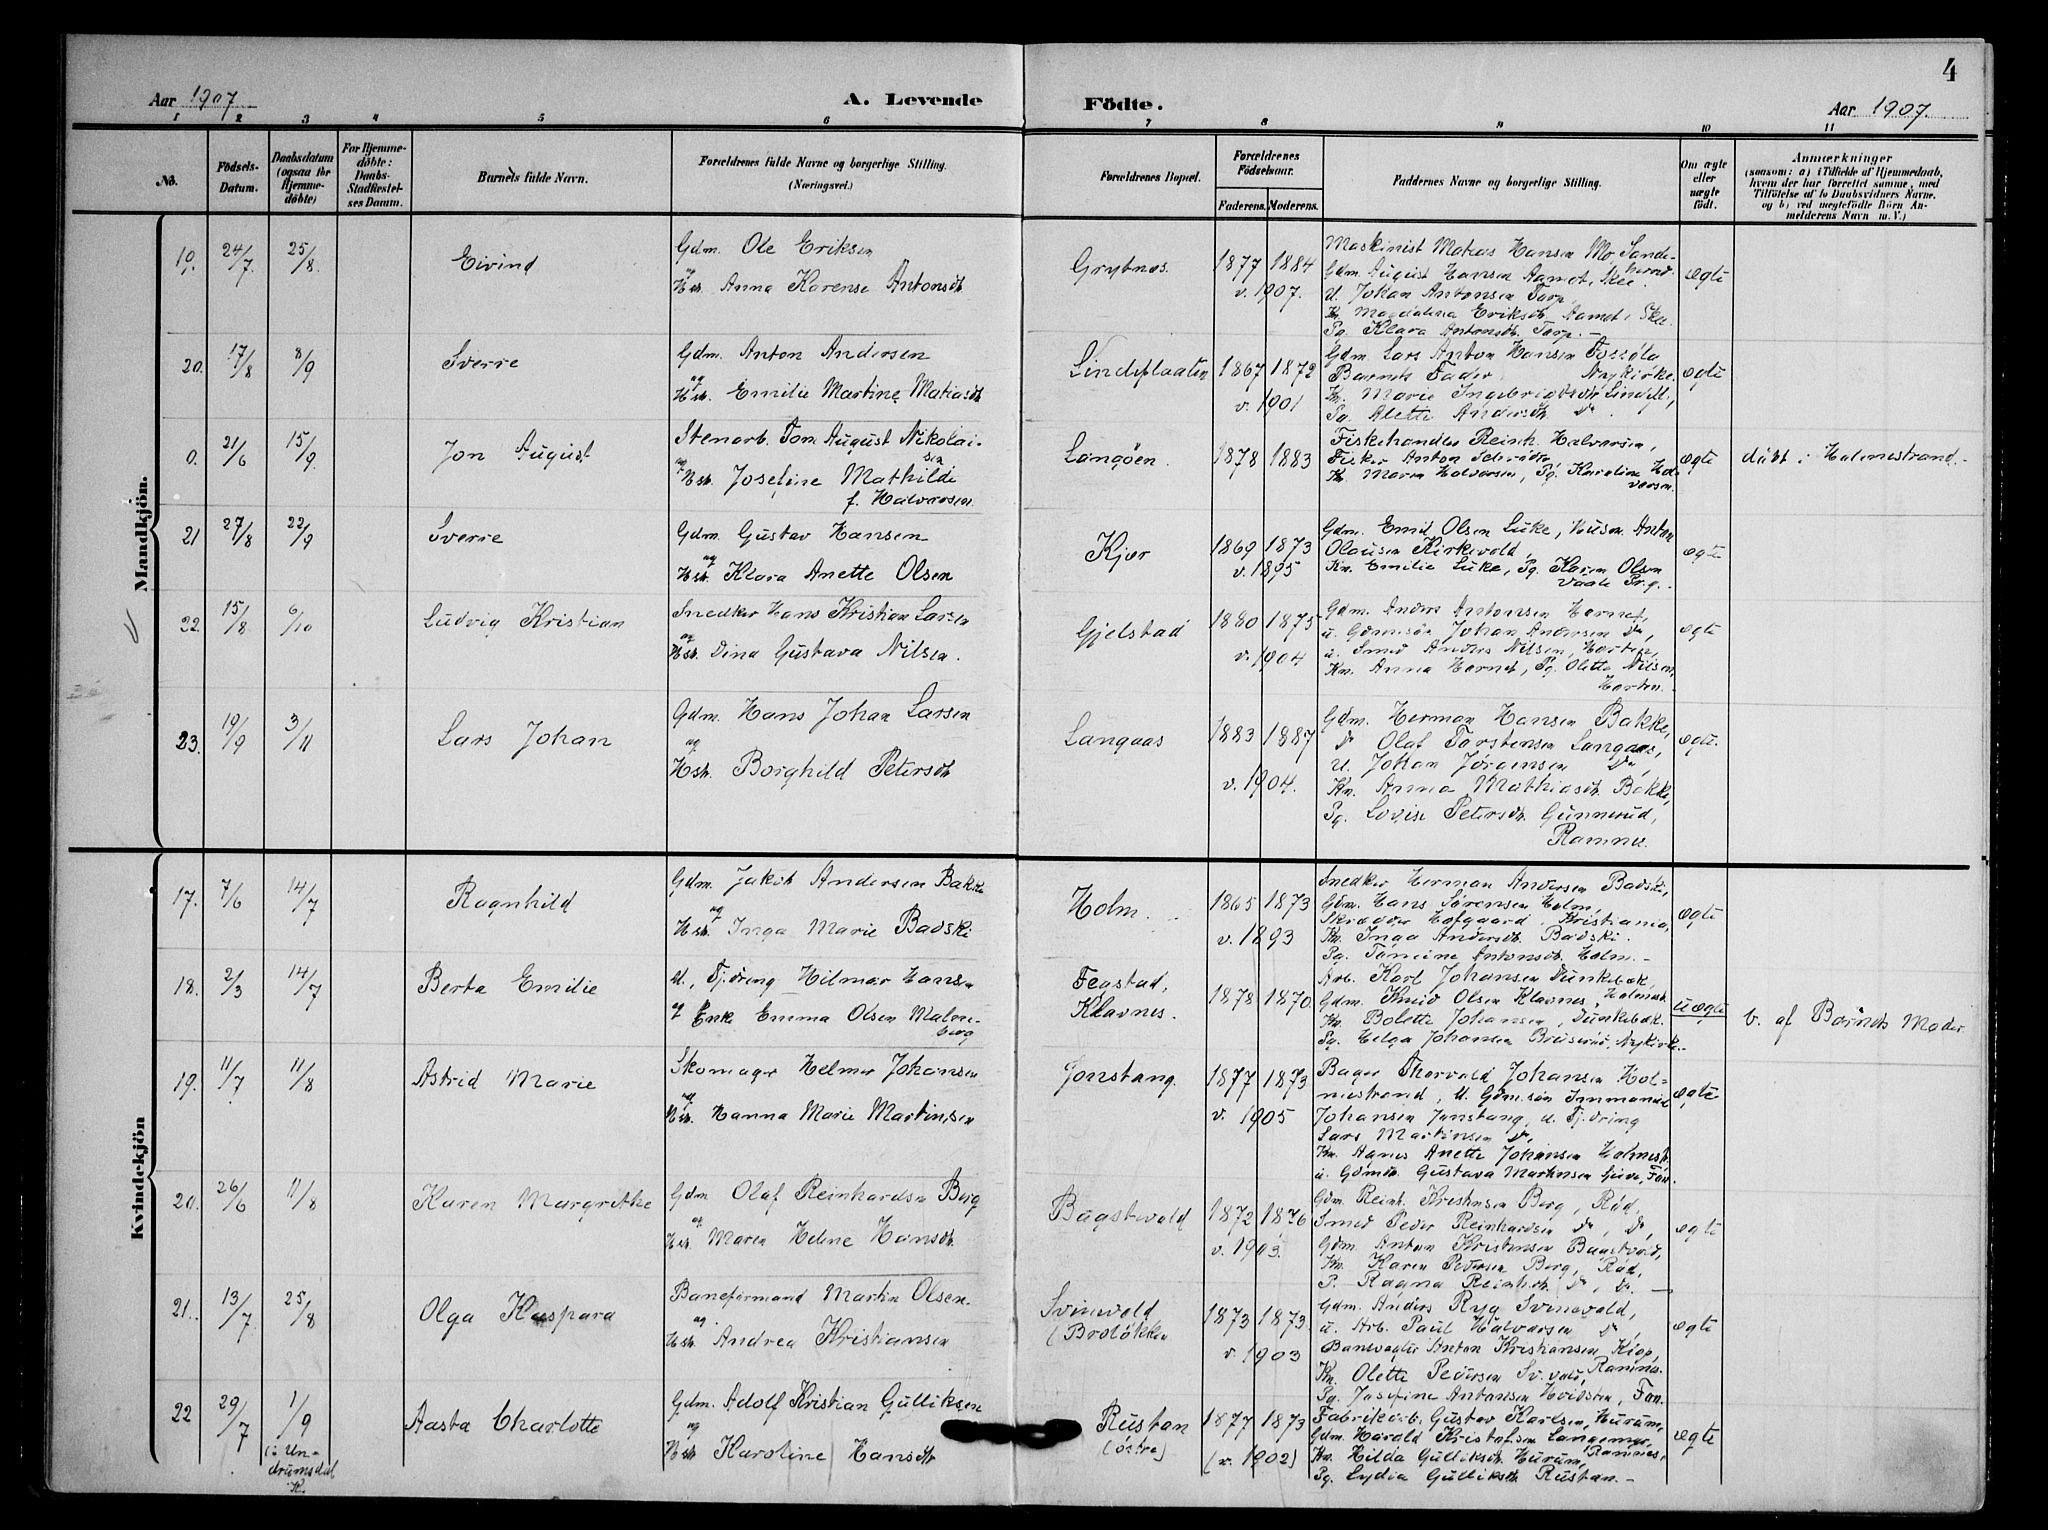 4
Aar 1907
A. Levende
Födte.
Aar 1907.
1 2 3 4 5 6 7 8 9 10 11
No.
Födsels-
Datum.
Daabsdatum
(ogsaa for
Hjemme-
döbte)
For Hjemme-
döbte:
Daabs-
Stadfæstel-
ses Datum.
Barnets fulde Navn.
Forældrenes fulde Navne og borgerlige Stilling.
(Næringsvei.)
Forældrenes Bopæl.
Forældrenes
Födselsaar.
Faderens. Moderens.
Faddernes Navne og borgerlige Stilling.
Om ægte
eller
uægte
födt.
Anmærkninger
(saasom: a) i Tilfælde af Hjemmedaab,
hvem der har forrettet samme, med
Tilföielse af to Daabsvidners Navne,
og b) ved uægtefödte Börn An-
melderens Navn m. V.)
Mandkjön.
19. 24/7 25/8 Eivind
Gdm. Ole Eriksen
og
Hst. Anna Karense Antonsdt.
Grytnes.
1877 1884
v. 1907.
Maskinist Matias Hansen Mo, Sande-
herred
Gdm. August Hansen Aamot, Skee.
U. Johan Antonsen Torp,
Kn. Magdalena Eriksdt. Aamot, Skee.
Pg. Klara Antonsdt. Torp. -
ægte
20. 17/8 8/9 Sverre
Gdm. Anton Andersen
og
Hst. Emilie Martine Matiasdt
Lindeplaaten
1867 1872
v. 1901
Gdm. Lars Anton Hansen
Barnets Fader Nykirke.
Kn. Marie Ingebrigtsdt. Lindepl.,
Pg. Alette Andersdt. Do.
ægte
0. 21/6 15/9 Jon August
Stenarb. Tom August Nikolai-
sen
og
Hst. Josefine Mathilde
f. Halvorsen.
Langöen.
1878 1883
Fiskehandler Reinh. Halvorsen,
Fisker Anton
Kn. Maren Halvorsen, Pg. Karoline Hal-
vorsen
ægte
döbt i Holmestrand.
21 27/8 22/9 Sverre
Gdm. Gustav Hansen
og
Hst. Klara Anette Olsen
Kjær
1869 1873
v. 1895
Gdm. Emil Olsen Luke, Husm. Anton
Olausen Kirkevold,
Kn. Emilie Luke, Pg. Karen Olsen
Vaale Prg.
ægte
22. 15/8 6/10 Ludvig Kristian
Snedker Hans Kristian Larsen
og
Hst. Dina Gustava Nilsen.
Gjelstad
1880 1875
v. 1904
Gdm. Anders Antonsen Hornet,
u. Gdmsön Johan Andersen Do,
u. Smed Anders Nilsen, Horten,
Kn. Anna Hornet, Pg. Olette Nilsen,
Horten.
ægte
23. 19/9 3/11 Lars Johan
Gdm. Hans Johan Larsen
og
Hst. Borghild Petersdt
Langaas
1883 1887
v. 1904.
Gdm. Herman Hansen Bakke,
Do Olaf Torstensen Langaas,
U. Johan Jörgensen Do,
Kn. Anna Mathiasdt. Bakke,
Pg. Lovise Petersdt. Gunnerud,
Ramnes.
ægte.
Kvindekjön
17. 7/6 14/7 Ragnhild
Gdm. Jakob Andersen Bakke
og
Hst. Inga Marie Badski
Holm.
1865 1873
v. 1893
Snedker Herman Andersen Badski,
Gdm. Hans Sörensen Holm,
Skrædder Hofgaard Kristiania,
Kn. Inga Andersdt. Badski.
Pg. Tomine Antonsdt. Holm. -
ægte
18. 2/3 14/7 Berta Emilie
U., Tj.dreng Hilmar Hansen
og Enke Emma Olsen Malm-
berg
Fegstad,
Klavnes.
1878 1870
Arb. Karl Johansen Dunkebæk,
Gdm. Knud Olsen Klavnes, Holmest.
Kn. Bolette Johansen, Dunkebæk.
Pg. Helga Johansen Bruserud, Nykirke.-
uægte
b. af Barnets Moder
19. 11/7 11/8 Astrid Marie
Skomager Helmer Johansen
og
Hst. Hanna Marie Martinsen
Jonstang.
1877 1873
v. 1905
Bager Thorvald Johansen Hol-
mestrand, U. Gdm.sön Immanuel
Johansen Jonstang, U. Tj.dreng
Lars Martinsen Do,
Kn. Agnes Anette Johansen Holmestr.
u. Gdmdt. Gustava Martinsen
ægte
20. 26/6 11/8 Karen Margrethe
Gdm Olaf Reinhardsen Berg
og
Hst. Maren Helene Hansdt.
Bugstvold
1872 1876
v. 1903.
Gdm. Reinh. Kristensen Berg, Röd,
Smed Peder Reinhardsen Do, Do,
Gdm. Anton Kristensen Bugstvold,
Kn. Karen Pedersen Berg, Röd,
P. Ragna Reinhdt. Do, Do. -
ægte
21. 13/7 25/8 Olga Kaspara
Baneformand Martin Olsen.
og
Hst. Andrea Kristiansen
Svinevold
(Brolökken
1873 1873
v. 1903
Gdm. Anders Ryg Svinevold,
u. Arb. Paul Halvorsen Do,
Banevogter Anton Kristiansen Kjop,
Ramnes.
Kn. Olette Pedersen Sv.vold,
Pg. Josefine Antonsen Hvidsten, Fon
ægte
22 29/7 1/9 Aasta Charlotte
(i Un-
drumsdal
K.
Gdm. Adolf Kristian Gulliksen
og
Hst Karoline Hansdt
Rustan
(östre)
1877 1873
(v. 1902)
Fabrikarb. Gustav Karlsen, Hurum,
Gdm. Harald Kristofsen Langemyr,
Ramnes,
Kn. Hilda Gulliksdt. Hurum,
Pg. Lydia Gulliksdt. Rustan. -
ægte